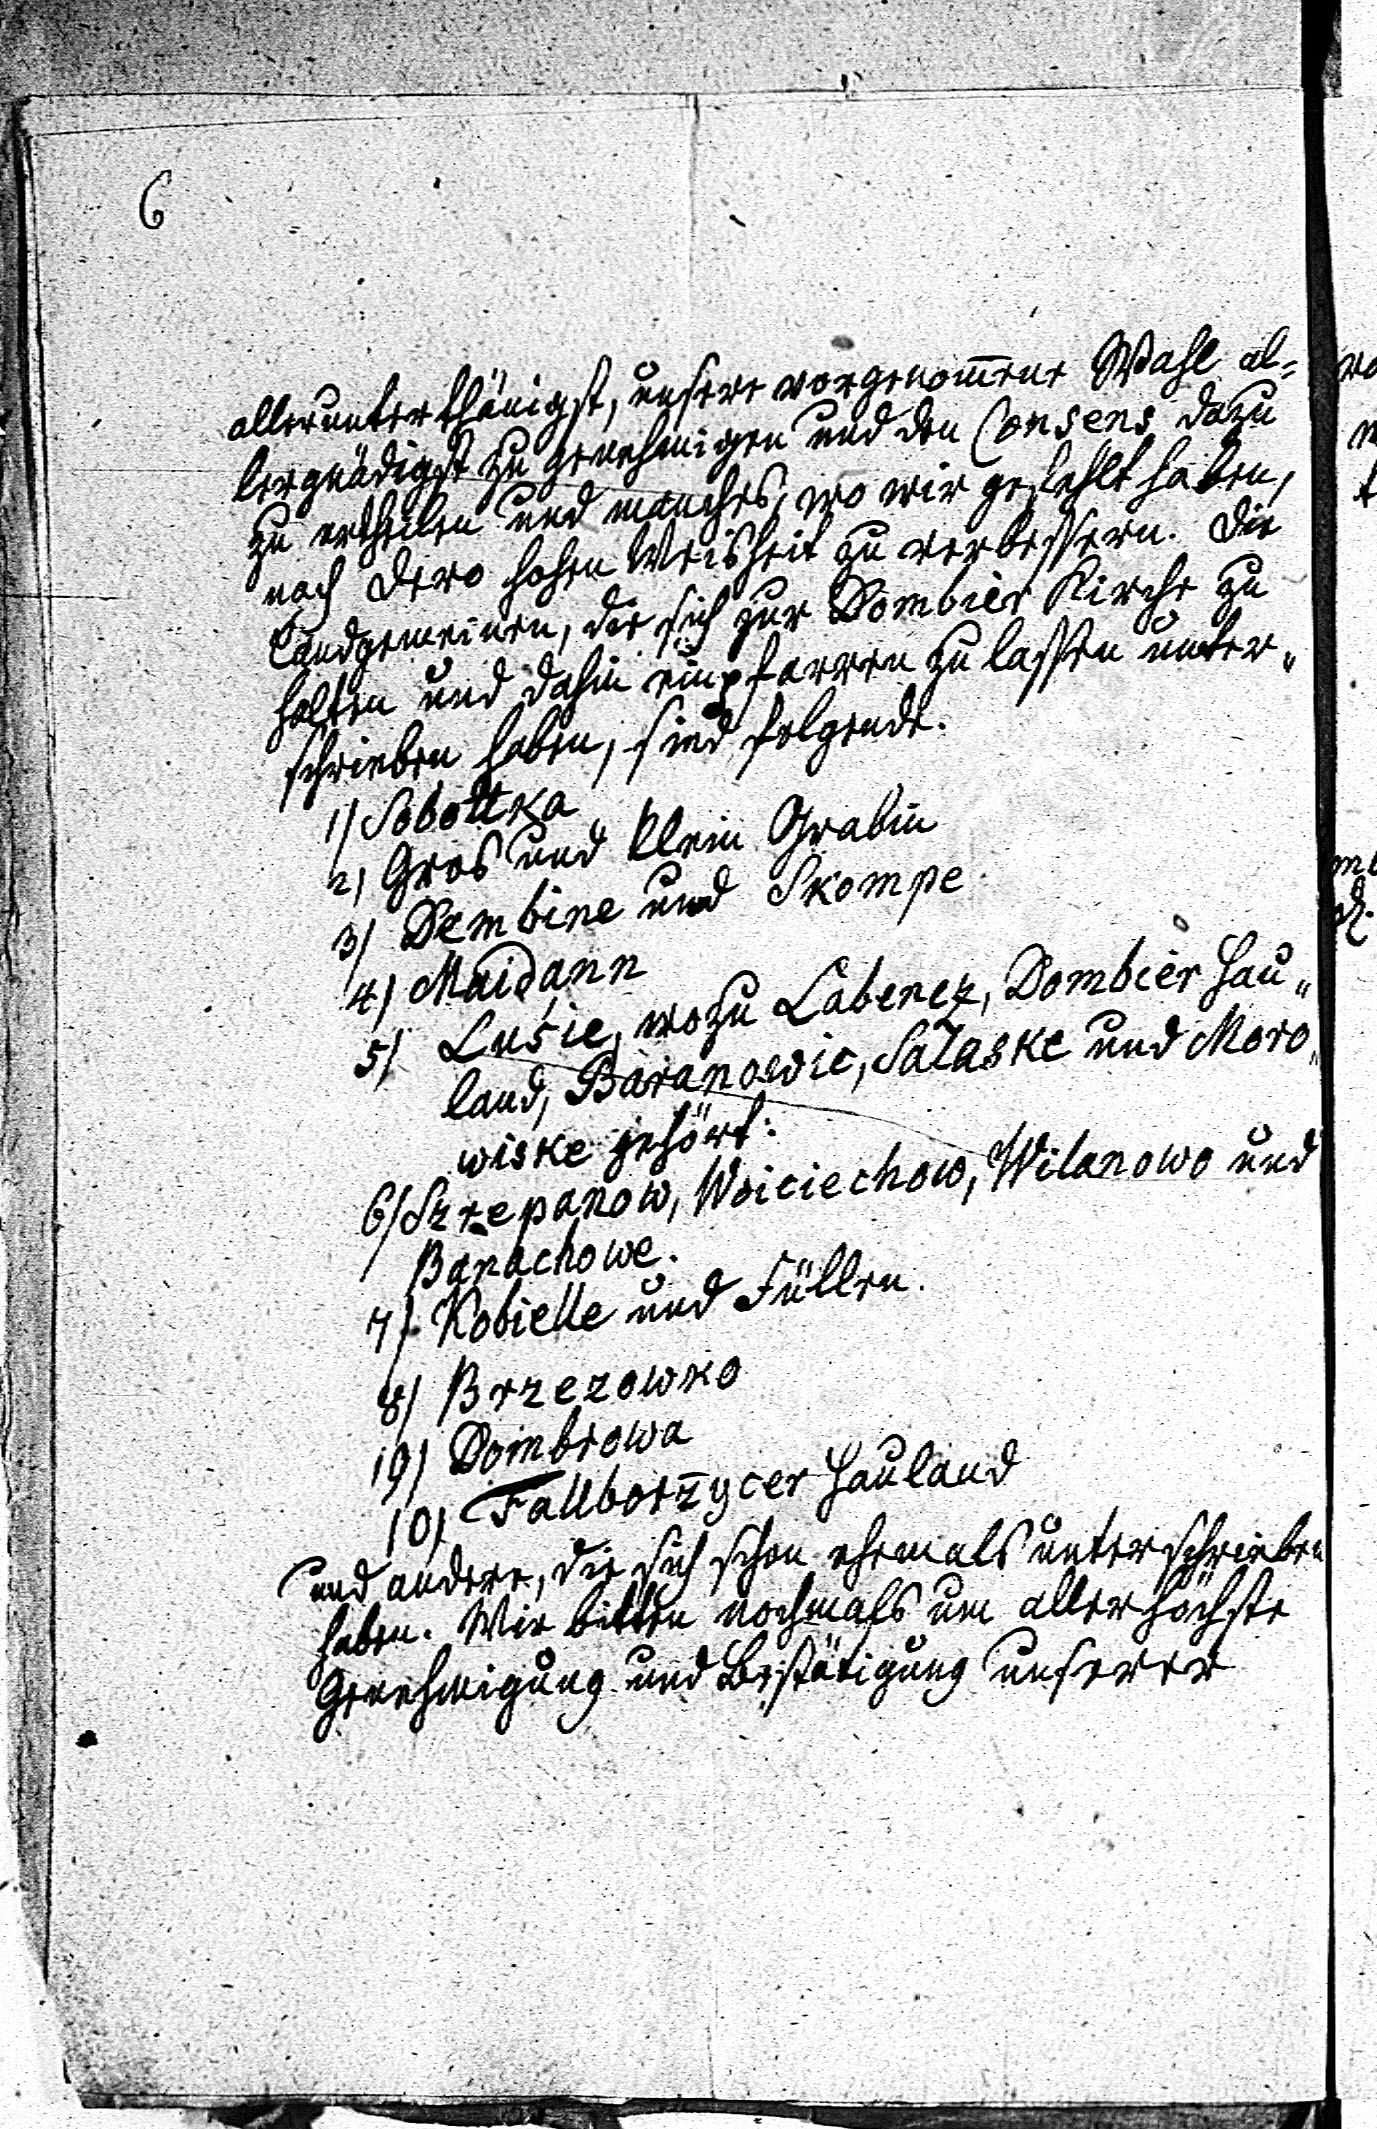 6
allerunterthänigst, unsere vorgenom̅ene Wahl al=
lergnädigst zu genehmigen und den Consens dazu
zu ertheilen und manches, wo wir gefehlt haben,
nach Dero hohen Weisheit zu verbessern. Die
Landgemeinen, die sich zur Dombier Kirche zu
halten und dahin einpfarren zu lassen unter„
schrieben haben, sind folgende.
1) Sobottka
2) Gros und Klein Grabin
3) Dembine und Skompe
4) Maidann
5) Lusie, wozu Labencz, Dombier Hau„
land, Baranowic, Salaske und Moro„
wiske gehört:
6) Szrepanow, Woiciechow, Wilanowo und
Banachowe.
7) Kobielle und Füllen.
8) Brzezowko
9) Dombrowa
10) Fallborzycer Hauland
und andere, die sich schon ehemals unterschrieben
haben. Wir bitten nochmals um allerhöchste
Genehmigung und Bestätigung unserer